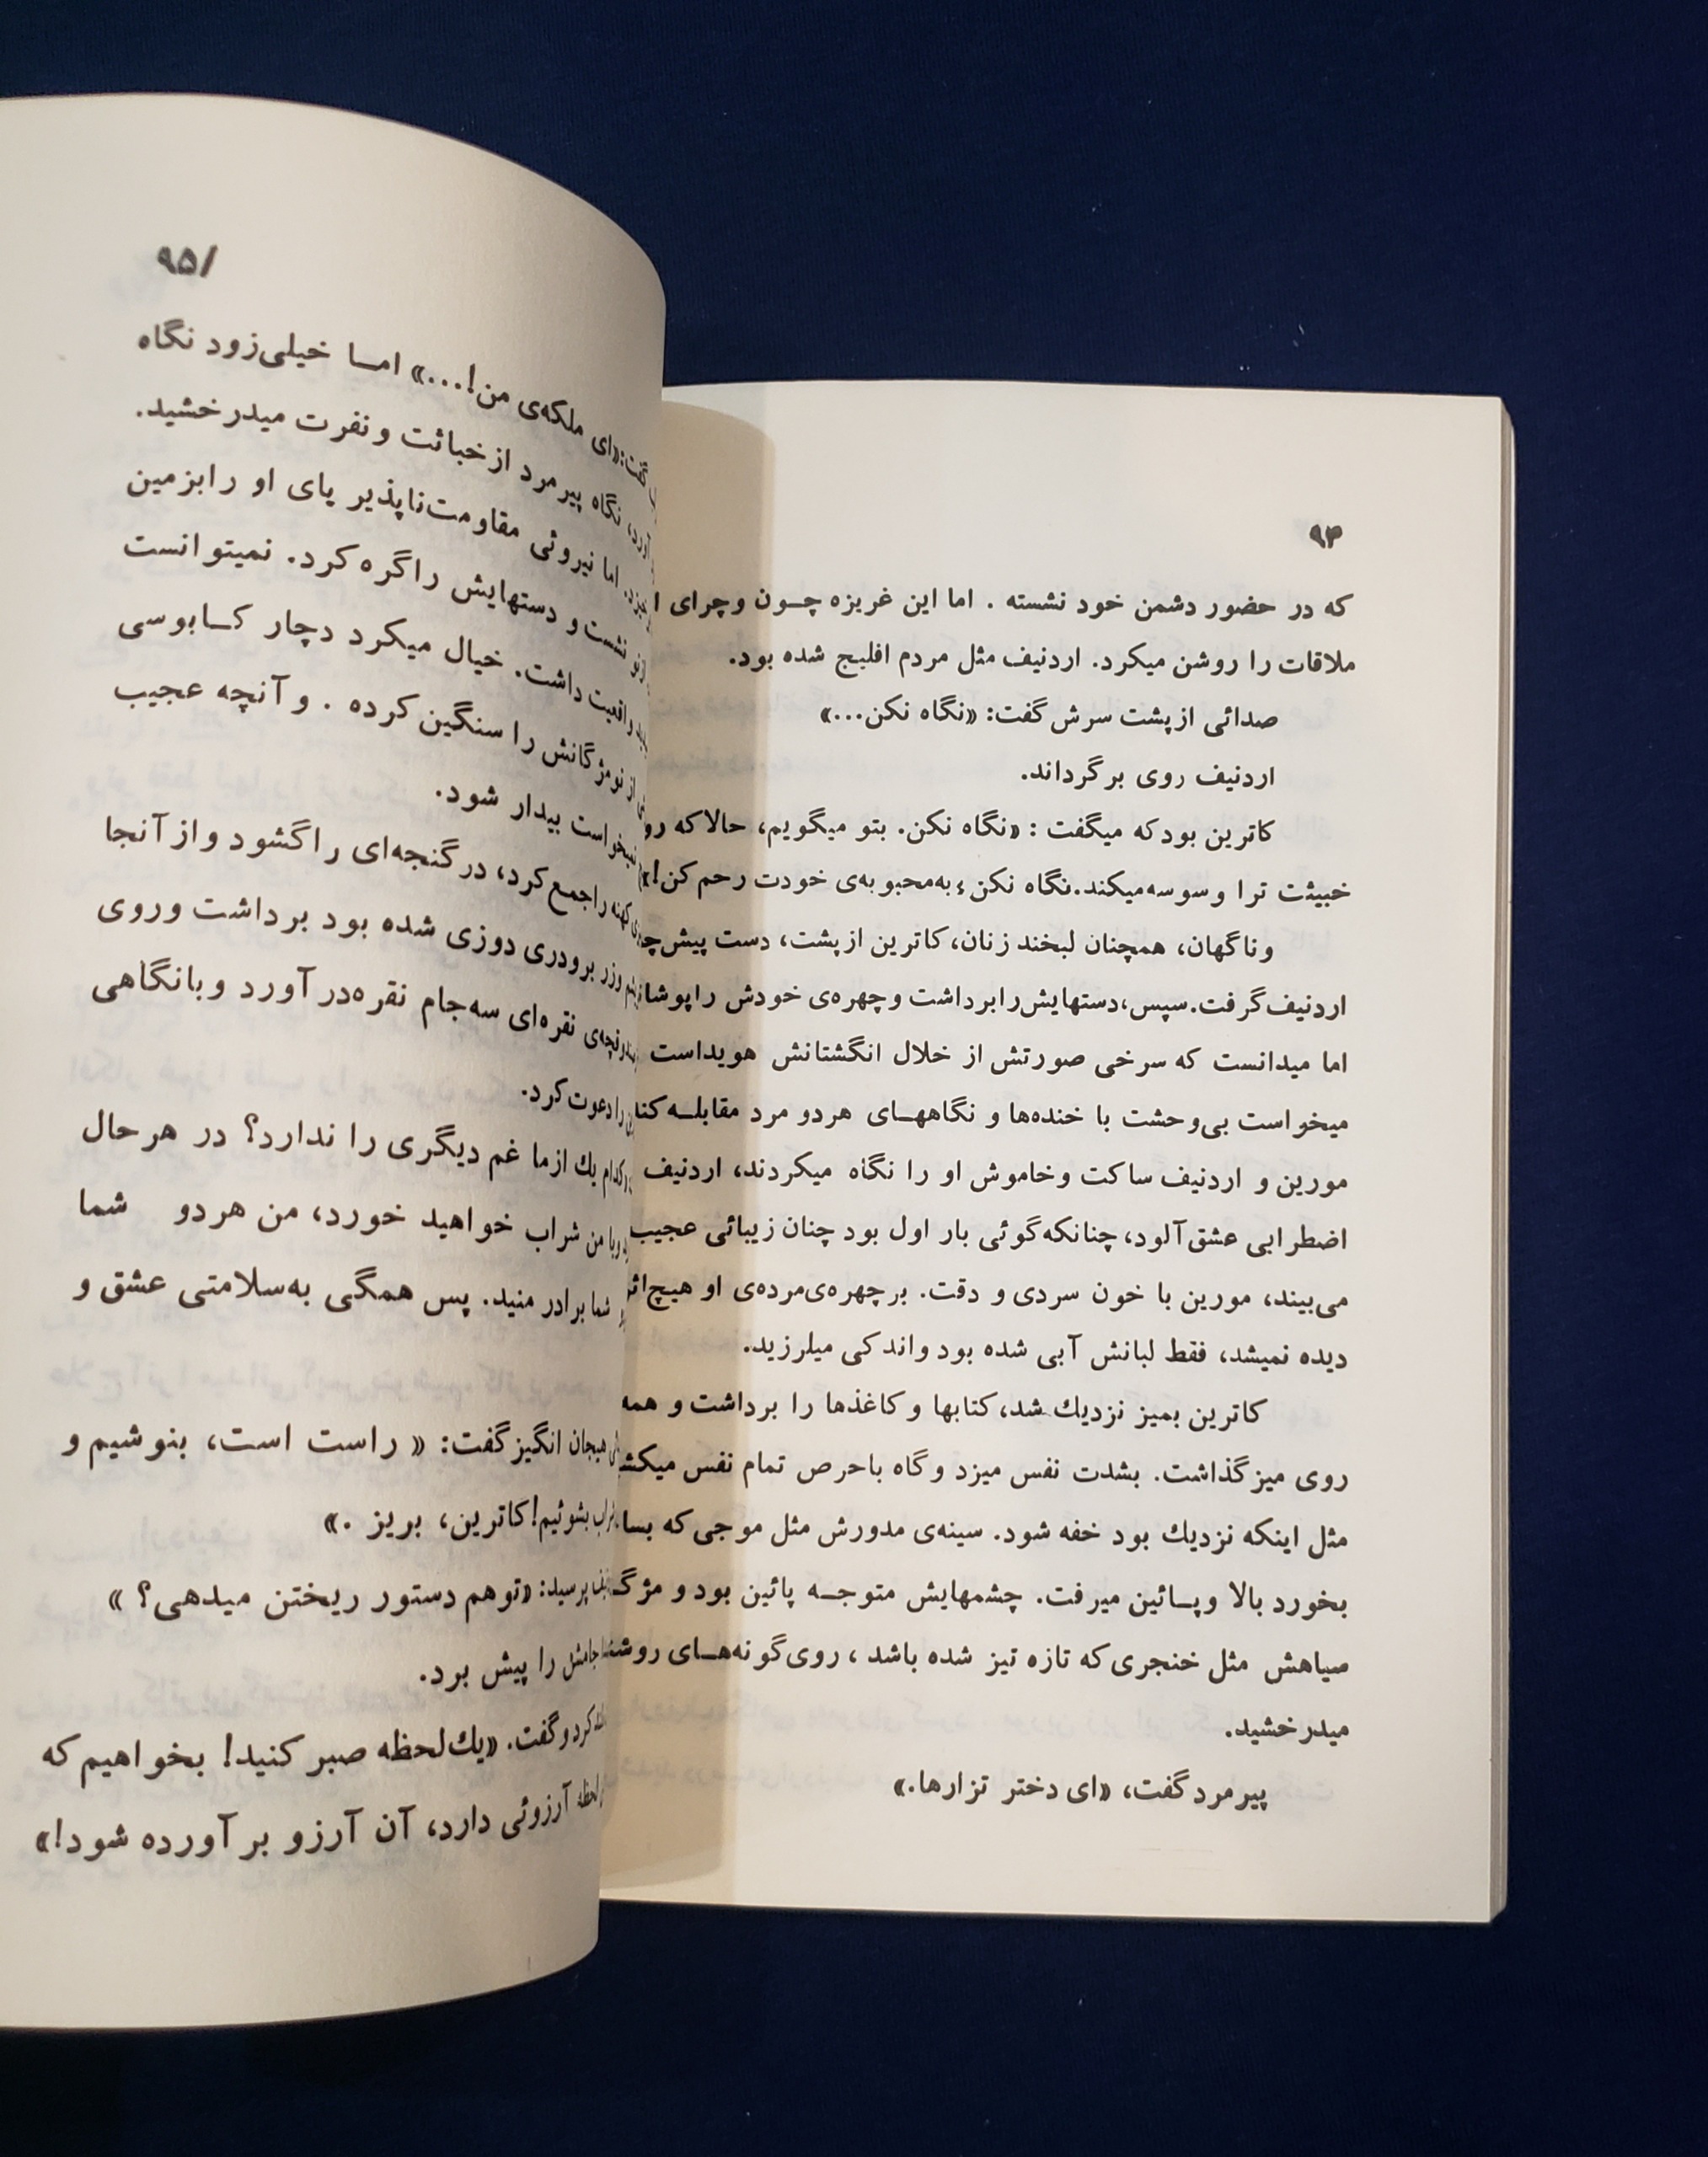 ۹۴
که در حضور دشمن خود نشسته . اما این غریزه چــون وچرای
ملاقات را روشن میکرد. اردنیف مثل مردم افلیج شده بود.
صدائی ازپشت سرش گفت: «نگاه نکن...»
اردنیف روی برگرداند.
کاترین بودکه میگفت : «نگاه نکن. بتو میگویم، حالاکه
خبیثت ترا وسوسه‌میکند.نگاه نکن، به‌محبوبه‌ی خودت رحم‌کن!»
وناگهان، همچنان لبخند زنان،کاترین ازپشت، دست پیش
اردنیف‌گرفت.سپس،دستهایش‌رابرداشت وچهره‌ی خودش را
اما میدانست که سرخی صورتش از خلال انگشتانش هویداست
میخواست بی‌وحشت با خنده‌ها و نگاههــای هردو مرد
مورین و اردنیف ساکت وخاموش او را نگاه میکردند، اردنیف
اضطرابی عشق‌آلود، چنانکه‌گوئی بار اول بود چنان زیبائی عجیب
می‌بیند، مورین با خون سردی و دقت. برچهره‌ی‌مرده‌ی او هیچ
دیده نمیشد، فقط لبانش آبی شده بود واندکی میلرزید.
کاترین بمیز نزدیك شد،کتابها وکاغذها را برداشت و همه
روی میزگذاشت. بشدت نفس میزد وگاه باحرص تمام نفس
مثل اینکه نزدیك بود خفه شود. سینه‌ی مدورش مثل موجی‌که
بخورد بالا وپــائین میرفت. چشمهایش متوجــه پائین بود و
صیاهش مثل خنجری‌که تازه تیز شده باشد ، روی‌گونه‌هــای
میدرخشید.
پیرمردگفت، «ای دختر تزارها.»
/۹۵
گفت:«ای ملکه‌ی من!...» امــا خیلی‌زود نگاه
نگاه پیرمرد ازخباثت ونفرت میدرخشید.
اما نیروئی مقاومت‌ناپذیر یای او رابزمین
نشست و دستهایش راگره‌کرد. نمیتوانست
واقعیت داشت. خیال میکرد دچار کــابوسی
از نومژگانش را سنگین‌کرده . وآنچه عجیب
نمیخواست بیدار شود.
کهنه راجمع‌کرد، درگنجه‌ای راگشود وازآنجا
وزر برودری دوزی شده بود برداشت وروی
نقره‌ای سه‌جام نقره‌درآورد وبانگاهی
را دعوت‌کرد.
یك ازما غم دیگری را ندارد؟ در هرحال
من شراب خواهید خورد، من هردو شما
شما برادر منید. پس همگی به‌سلامتی عشق و
هیجان انگیزگفت: « راست است، بنوشیم و
بشوئیم!کاترین، بریز .»
پرسید: «توهم دستور ریختن میدهی؟ »
جامش را پیش برد.
کرد وگفت. «یك‌لحظه صبرکنید! بخواهیم‌که
لحظه آرزوئی دارد، آن آرزو برآورده شود!»